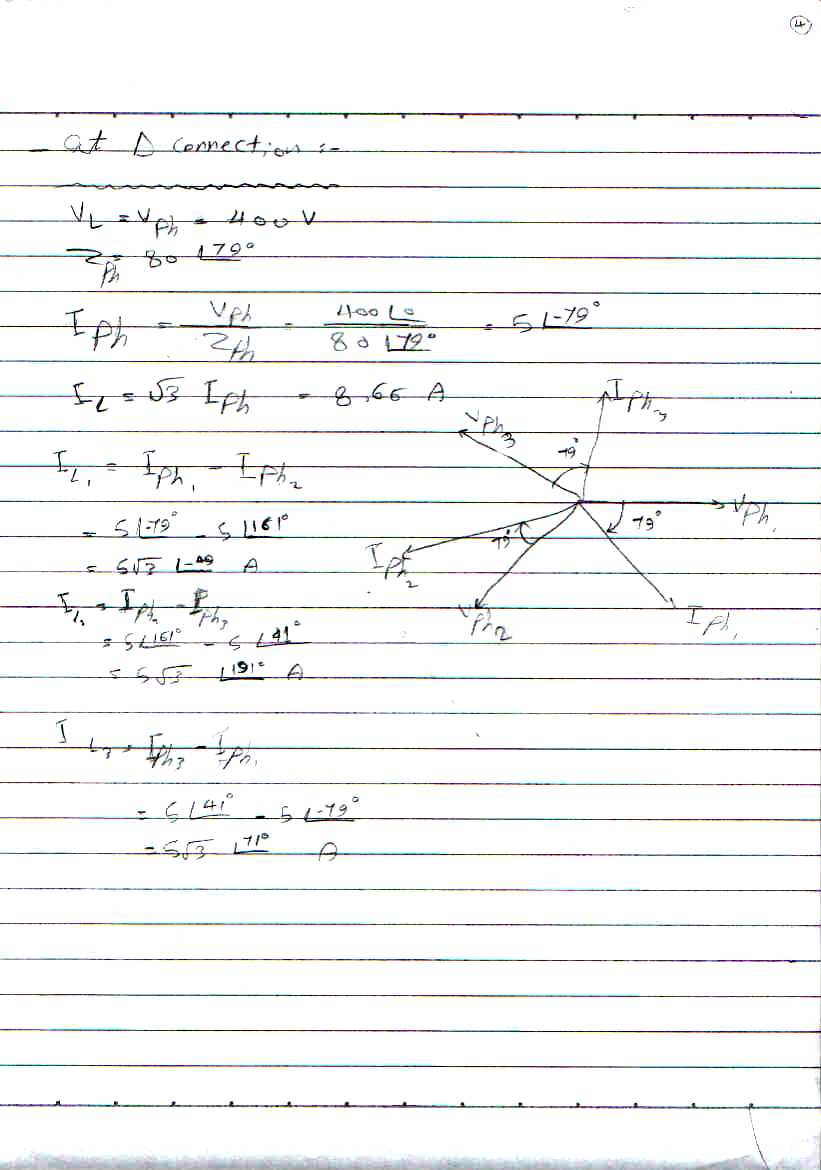 4
- at Δ connection :-
V_L = V_ph = 400 V
Z_ph = 80 ∠79°
I_ph = V_ph / Z_ph = 400∠0 / 80∠79° = 5 ∠-79°
I_L = √3 I_ph = 8.66 A
I_L1 = I_ph1 - I_ph2
= 5∠-79° - 5∠161°
= 5√3 ∠-49 A
I_L2 = I_ph2 - I_ph3
= 5∠161° - 5∠41°
= 5√3 ∠191° A
I_L3 = I_ph3 - I_ph1
= 5∠41° - 5∠-79°
= 5√3 ∠71° A
I_ph3
V_ph3
79°
V_ph1
79°
79°
I_ph2
V_ph2
I_ph1